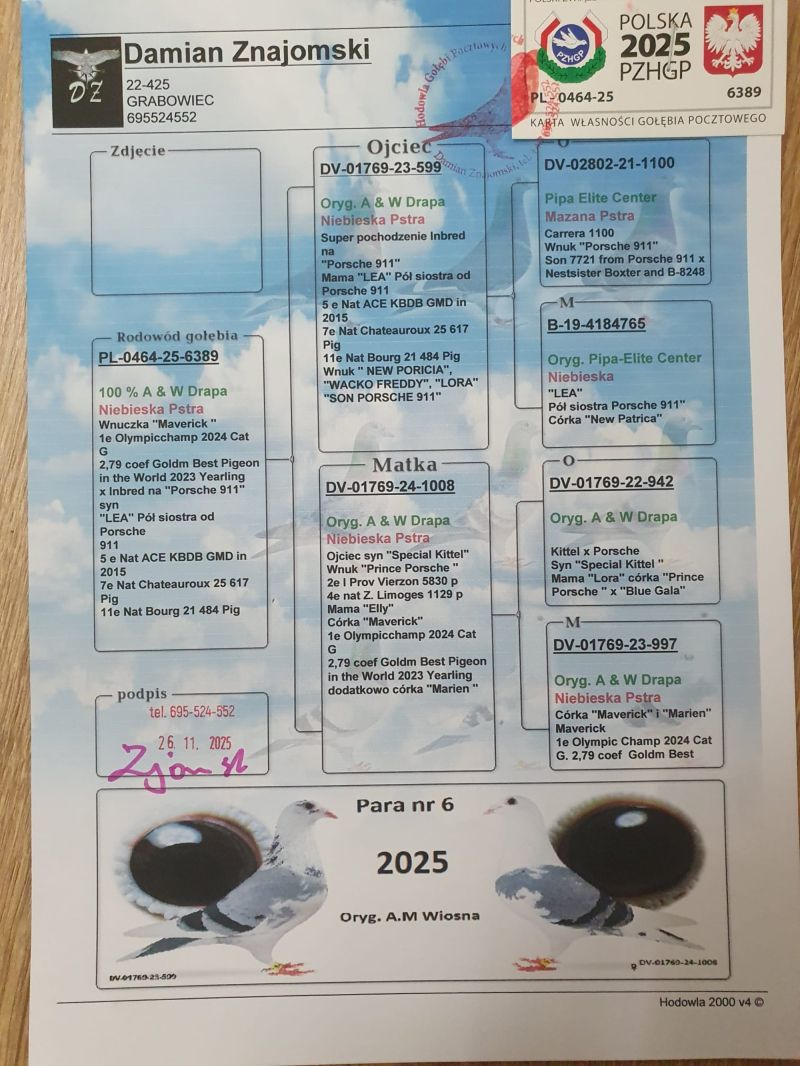 Damian Znajomski
DZ
22-425
GRABOWIEC
695524552
POLSKA
2025
PZHGP
PZHGP
PL - 0464-25
6389
KARTA WŁASNOŚCI GOŁĘBIA POCZTOWEGO
Hodowla Gołębi Pocztowych
Damian Znajomski, tel.
Zdjęcie
Rodowód gołębia
PL-0464-25-6389
100 % A & W Drapa
Niebieska Pstra
Wnuczka "Maverick "
1e Olympicchamp 2024 Cat
G
2,79 coef Goldm Best Pigeon
in the World 2023 Yearling
x Inbred na "Porsche 911"
syn
"LEA" Pół siostra od
Porsche
911
5 e Nat ACE KBDB GMD in
2015
7e Nat Chateauroux 25 617
Pig
11e Nat Bourg 21 484 Pig
podpis
tel. 695-524-552
26. 11. 2025
Ojciec
DV-01769-23-599
Oryg. A & W Drapa
Niebieska Pstra
Super pochodzenie Inbred
na
"Porsche 911"
Mama "LEA" Pół siostra od
Porsche 911
5 e Nat ACE KBDB GMD in
2015
7e Nat Chateauroux 25 617
Pig
11e Nat Bourg 21 484 Pig
Wnuk " NEW PORICIA",
"WACKO FREDDY", "LORA"
"SON PORSCHE 911"
Matka
DV-01769-24-1008
Oryg. A & W Drapa
Niebieska Pstra
Ojciec syn "Special Kittel"
Wnuk "Prince Porsche "
2e I Prov Vierzon 5830 p
4e nat Z. Limoges 1129 p
Mama "Elly"
Córka "Maverick"
1e Olympicchamp 2024 Cat
G
2,79 coef Goldm Best Pigeon
in the World 2023 Yearling
dodatkowo córka "Marien "
O
DV-02802-21-1100
Pipa Elite Center
Mazana Pstra
Carrera 1100
Wnuk "Porsche 911"
Son 7721 from Porsche 911 x
Nestsister Boxter and B-8248
M
B-19-4184765
Oryg. Pipa-Elite Center
Niebieska
"LEA"
Pół siostra Porsche 911"
Córka "New Patrica"
O
DV-01769-22-942
Oryg. A & W Drapa
Kittel x Porsche
Syn "Special Kittel "
Mama "Lora" córka "Prince
Porsche " x "Blue Gala"
M
DV-01769-23-997
Oryg. A & W Drapa
Niebieska Pstra
Córka "Maverick" i "Marien"
Maverick
1e Olympic Champ 2024 Cat
G. 2,79 coef Goldm Best
Para nr 6
2025
Oryg. A.M Wiosna
DV-01769-23-599
♀ DV-01769-24-1008
Hodowla 2000 v4 ©